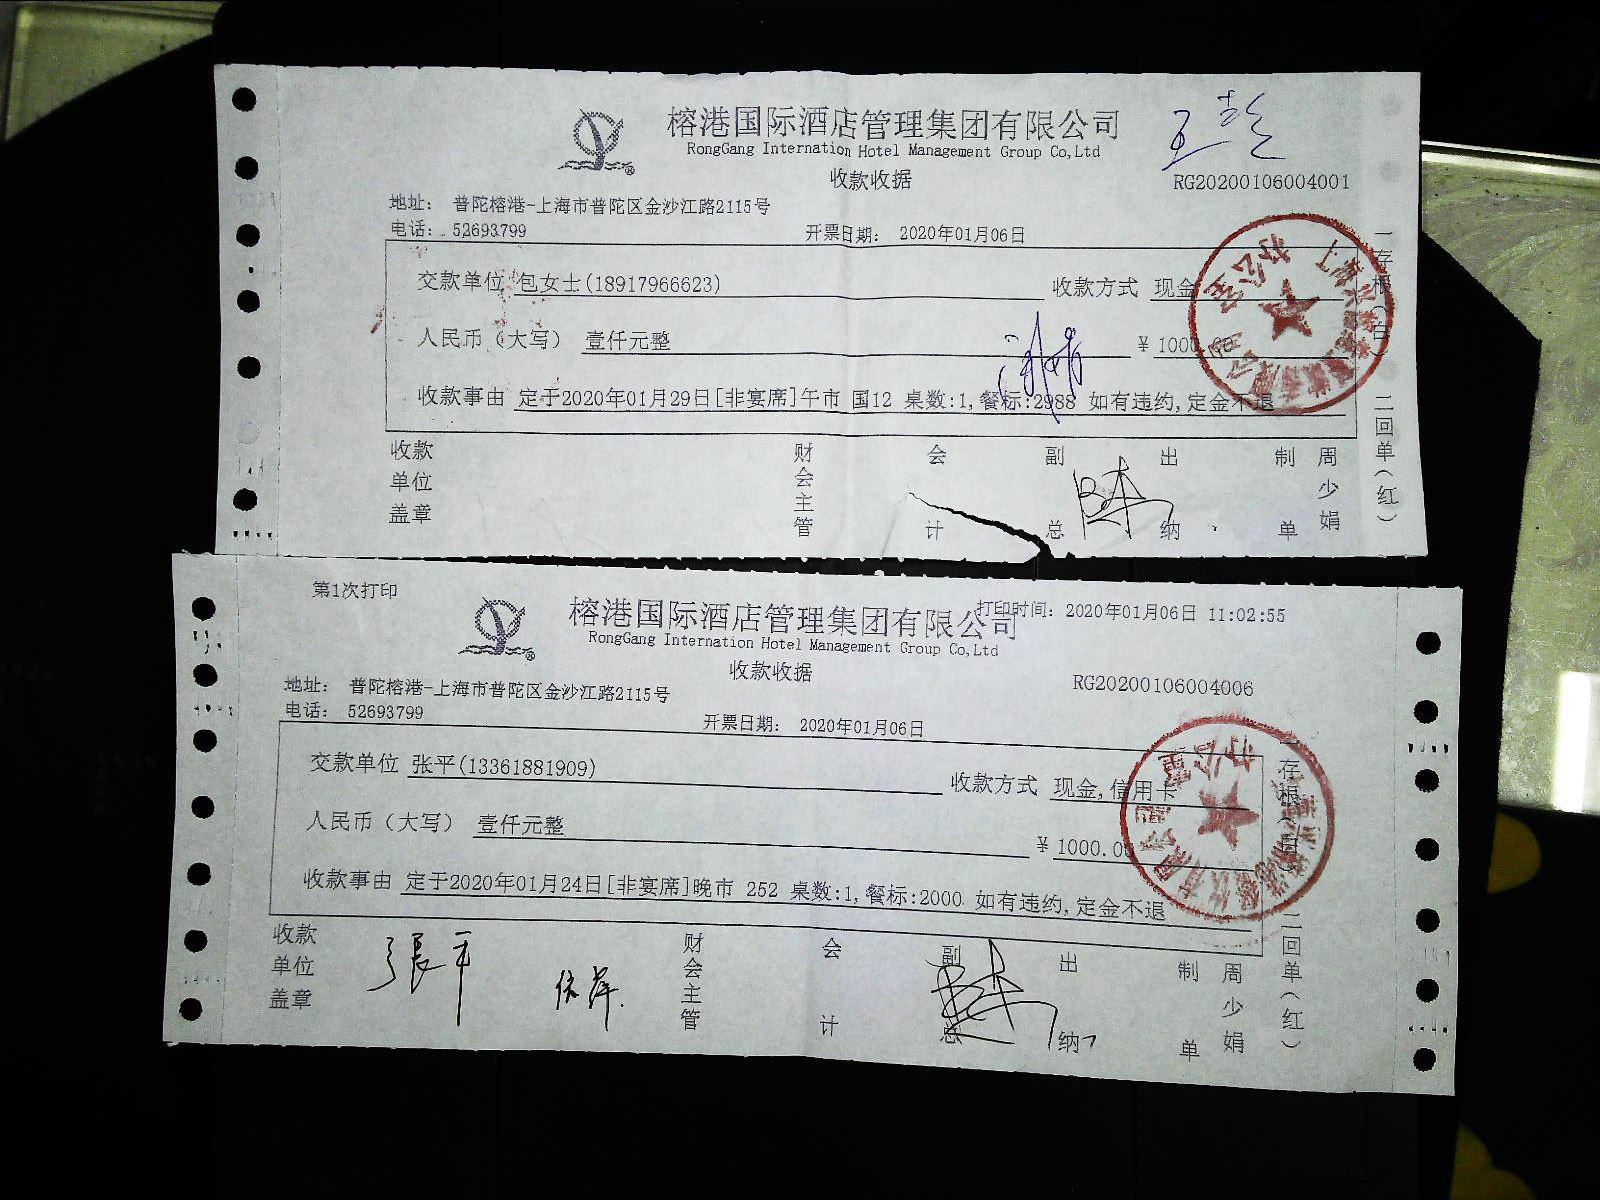 榕港国际酒店管理集团有限公司
RongGang Internation Hotel Management Group Co,Ltd
收款收据
RG20200106004001
地址： 普陀榕港-上海市普陀区金沙江路2115号
电话： 52693799
开票日期： 2020年01月06日
交款单位 包女士(18917966623) 收款方式 现金
人民币（大写） 壹仟元整 ¥ 1000.00
收款事由 定于2020年01月29日[非宴席]午市 国12 桌数:1,餐标:2988 如有违约,定金不退
收款单位盖章 财会主管 会计 副总 出纳 制单 周少娟
一存根（白） 二回单（红）
第1次打印
打印时间： 2020年01月06日 11:02:55
榕港国际酒店管理集团有限公司
RongGang Internation Hotel Management Group Co,Ltd
收款收据
RG20200106004006
地址： 普陀榕港-上海市普陀区金沙江路2115号
电话： 52693799
开票日期： 2020年01月06日
交款单位 张平(13361881909) 收款方式 现金,信用卡
人民币（大写） 壹仟元整 ¥ 1000.00
收款事由 定于2020年01月24日[非宴席]晚市 252 桌数:1,餐标:2000 如有违约,定金不退
收款单位盖章 張平 财会主管 会计 副总 出纳 制单 周少娟
一存根（白） 二回单（红）